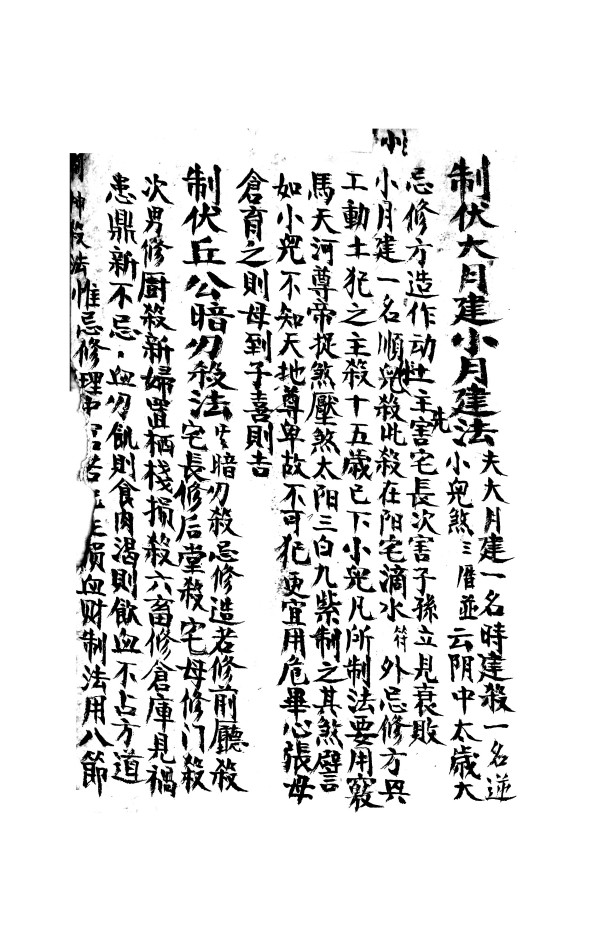 制伏大月建小月建法
夫大月建一名時建殺一名逆
小兒煞三曆並云阴中太歲大
忌修方造作动土先主害宅長次害子孫立見衰敗
小月建一名順兒殺此殺在阳宅滴水符外忌修方兴
工動土犯之主殺十五歲已下小兒凡所制法要用竅
馬天河尊帝捉煞壓煞太阳三白九紫制之其煞譬言
如小兒不知天地尊卑故不可犯更宜用危畢心張母
倉育之則母到子喜則吉
制伏丘公暗刃殺法
暗刃殺忌修造若修前廳殺
宅長修后堂殺宅母修门殺
次男修厨殺新婦置栖棧損殺六畜修倉庫見禍
患鼎新不忌血刃飢則食肉渴則飲血不占方道
惟忌修理中宫若主損血财制法用八節
神殺法
小